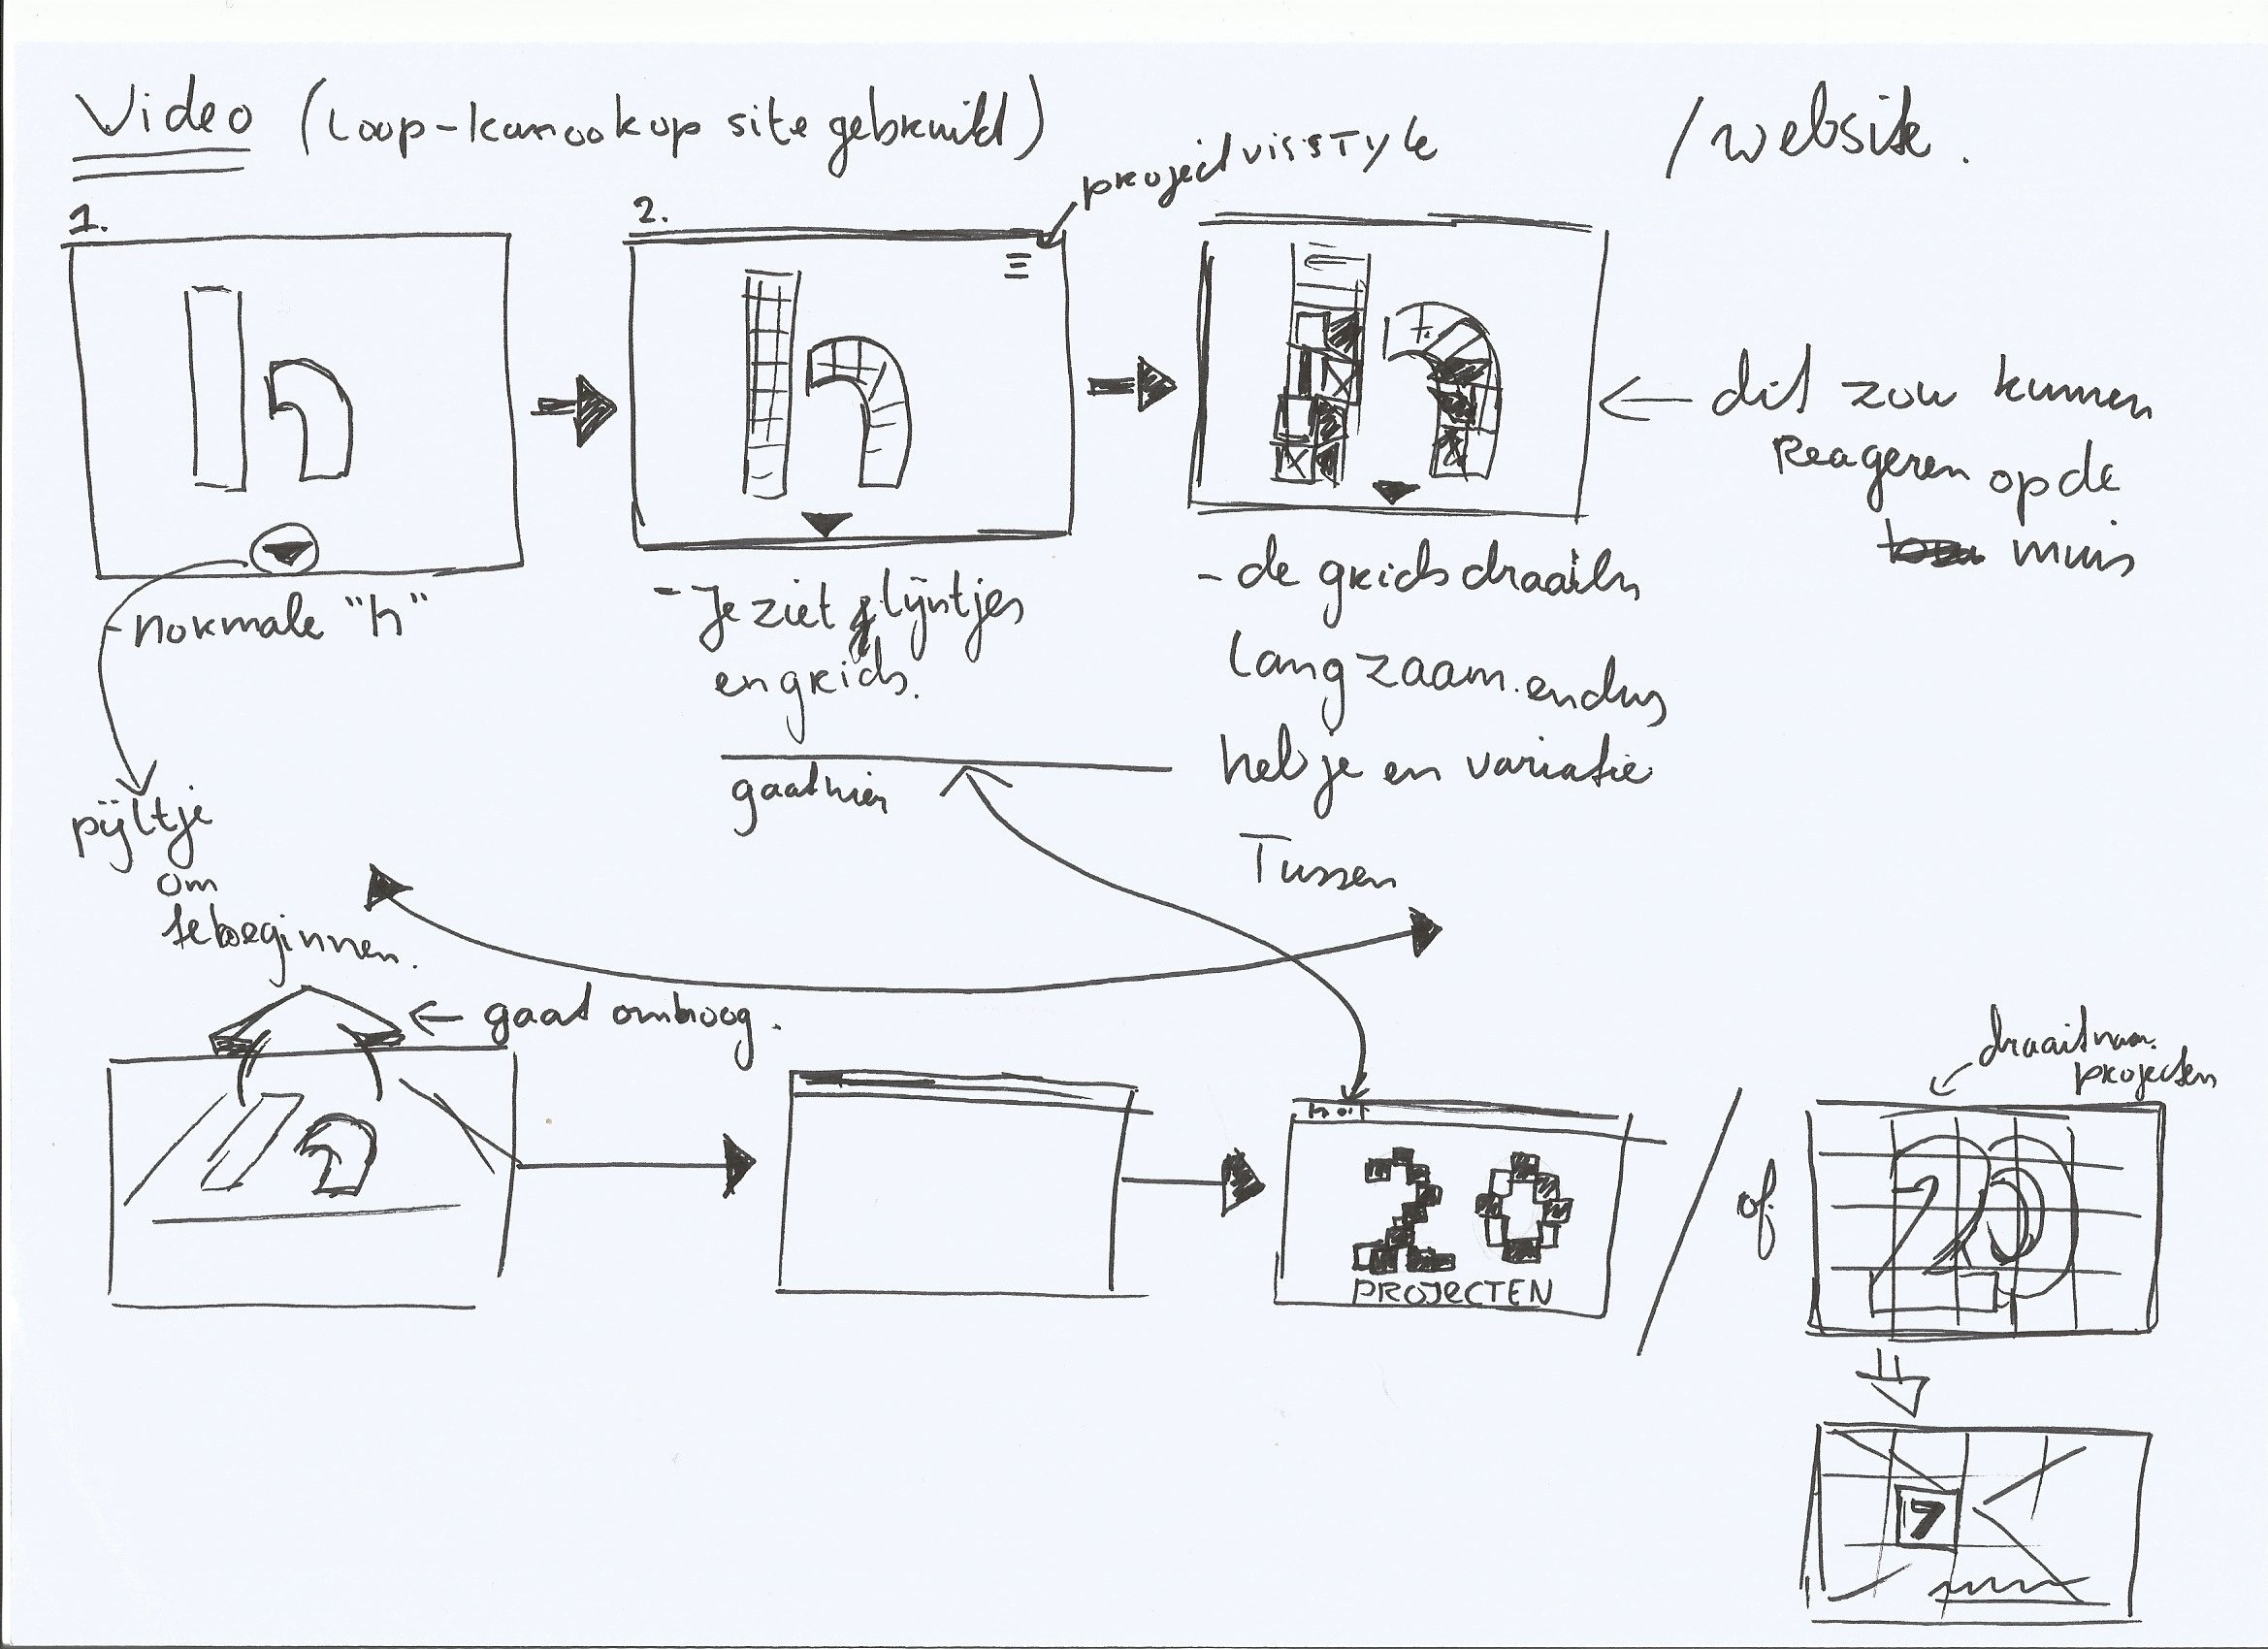 Video (Loop-kan ook op site gebruikt) /website.
projectvisstyle
1.
2.
dit zou kunnen
Reageren op de
muis
- normale "h"
- Je ziet lijntjes
en grids.
- de grids draaien
langzaam. en dus
heb je en variatie
Tussen
gaat hier
pijltje
om
te beginnen.
gaat omhoog.
draait naar
projecten
20
PROJECTEN
of
20
7